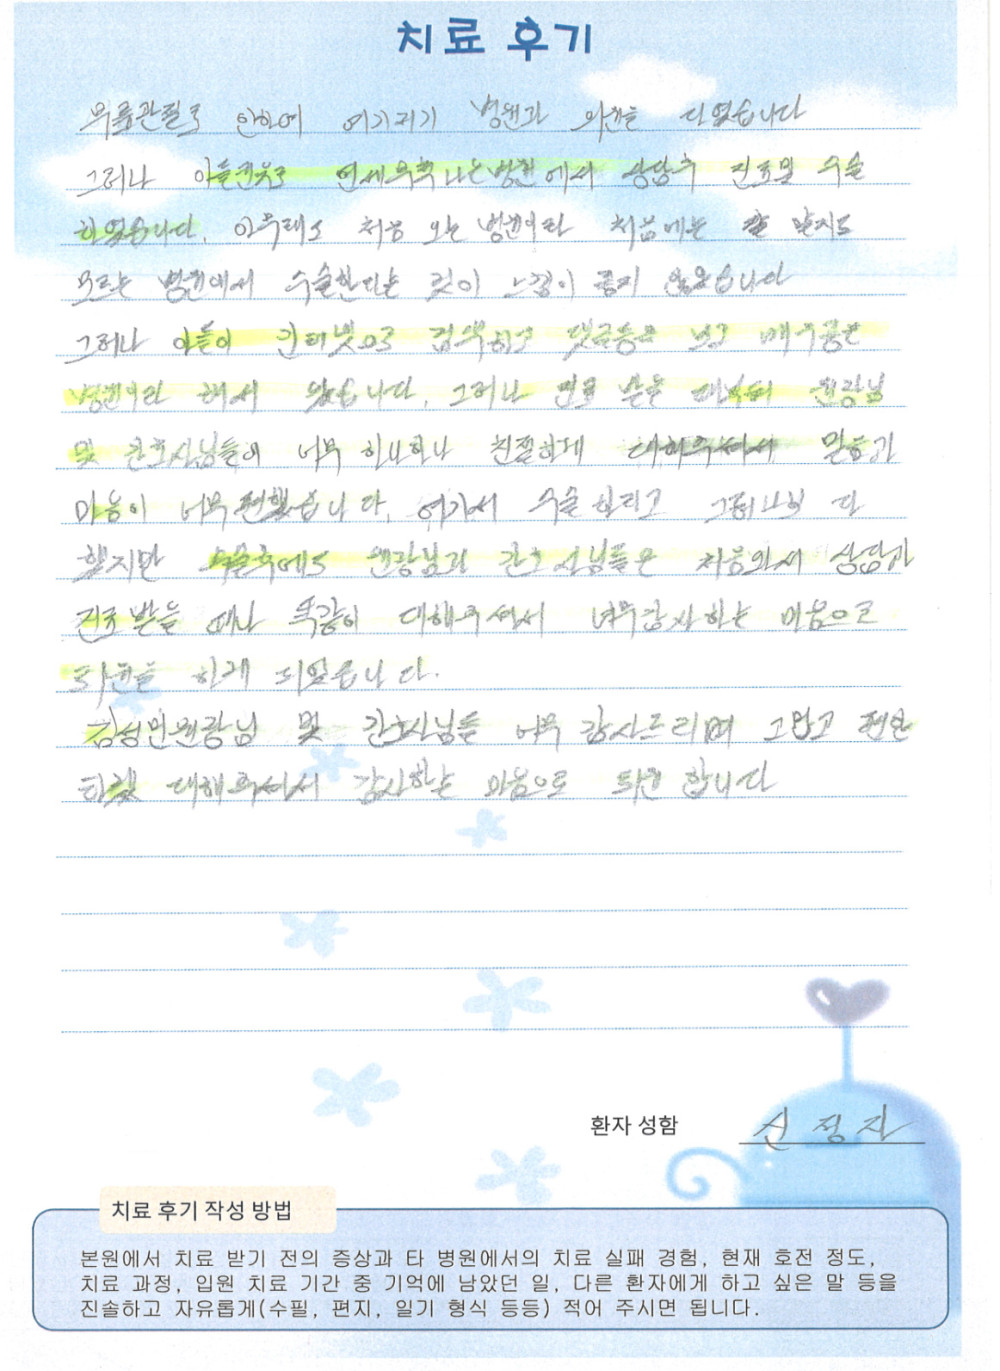 치료 후기
무릎관절로 인하여 여기저기 병원과 의원을 다녔습니다
그러나 아들권유로 연세무척나은병원에서 상담후 진료및 수술
하였습니다. 아무래도 처음 오는 병원이라 처음에는 잘 알지도
모르는 병원에서 수술한다는 것이 느낌이 좋지 않았습니다
그러나 아들이 인터넷으로 검색하고 댓글등을 보고 매우좋은
병원이라 해서 왔습니다. 그러나 진료 받을 때부터 원장님
및 간호사님들이 너무 하나하나 친절하게 대해주셔서 믿음과
마음이 너무편했습니다. 여기서 수술 하려고 그러나 다
했지만 수술후에도 원장님과 간호사님들은 처음와서 상담과
진료 받을 때나 똑같이 대해주셔서 너무감사하는 마음으로
퇴원을 하게 되었습니다.
김성민원장님 및 간호사님들 너무 감사드리며 그립고 편안
대해주셔서 감사하는 마음으로 퇴원 합니다
환자 성함 신정자
치료 후기 작성 방법
본원에서 치료 받기 전의 증상과 타 병원에서의 치료 실패 경험, 현재 호전 정도,
치료 과정, 입원 치료 기간 중 기억에 남았던 일, 다른 환자에게 하고 싶은 말 등을
진솔하고 자유롭게(수필, 편지, 일기 형식 등등) 적어 주시면 됩니다.